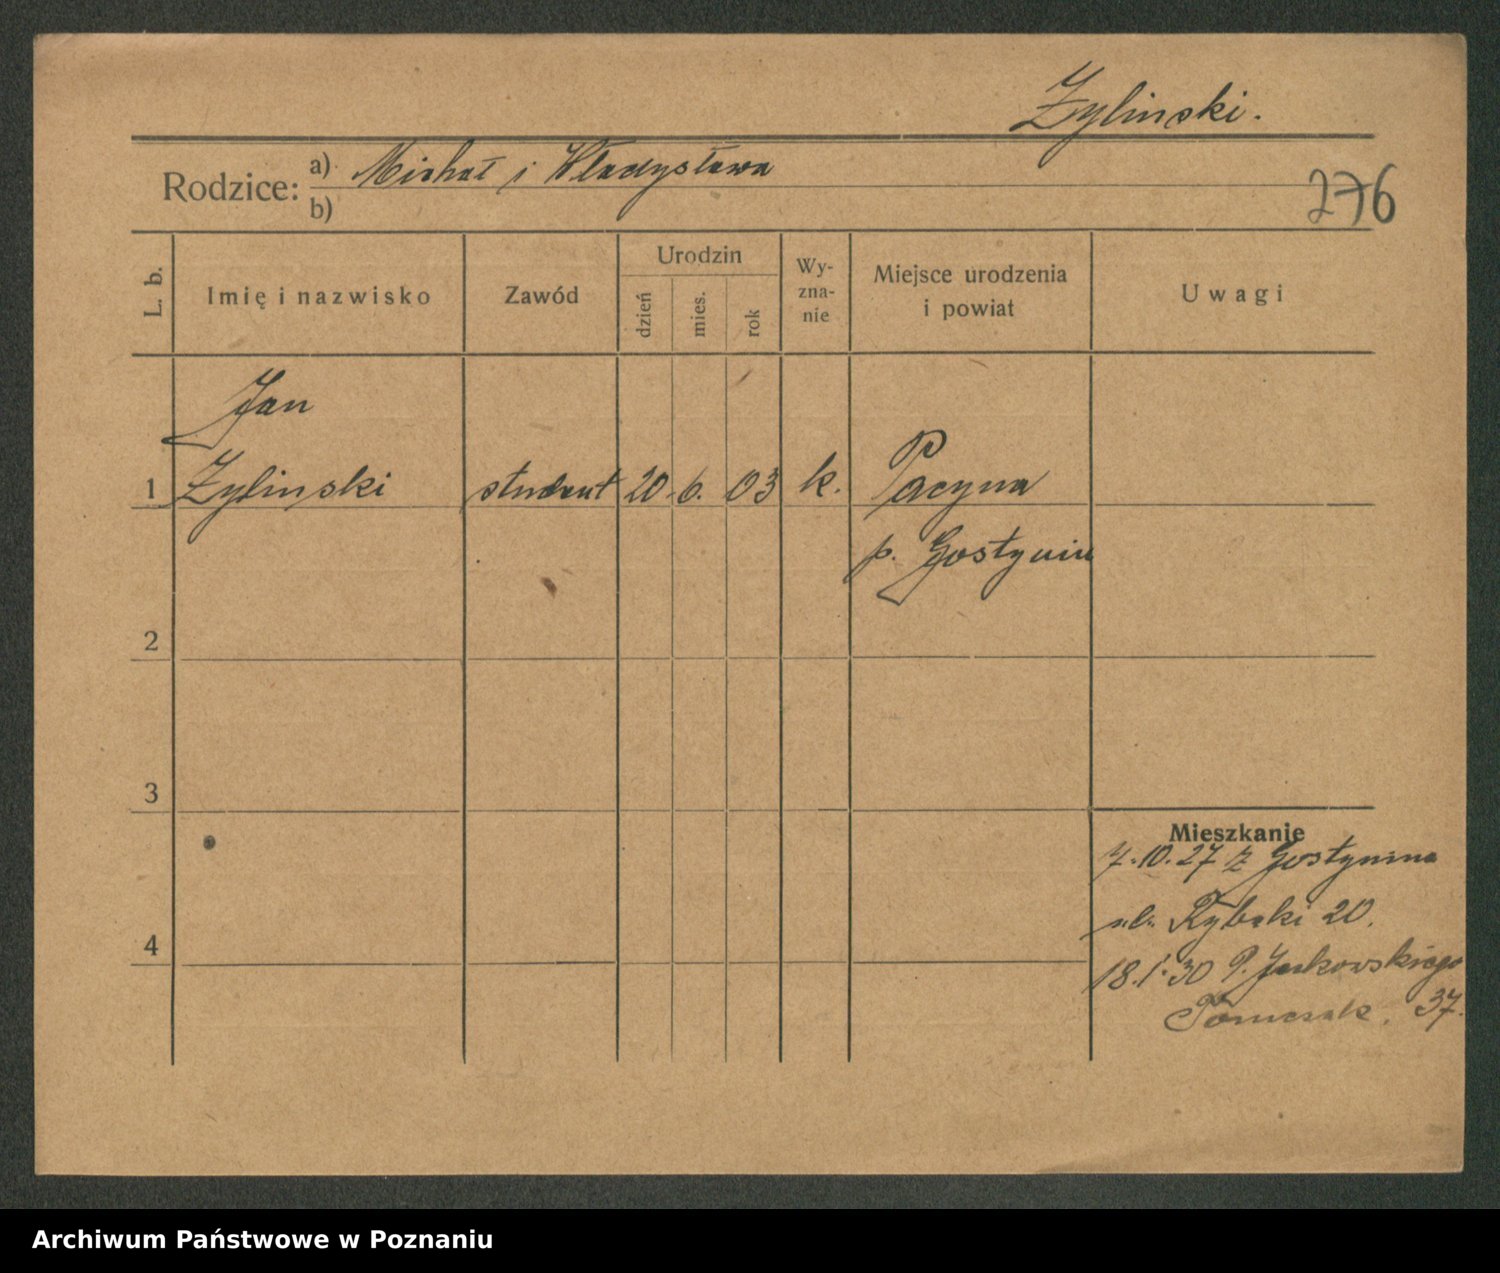 Zylinski.
Rodzice: a) Michał i Władysława
b)
276
L. b.
Imię i nazwisko
Zawód
Urodzin
dzień
mies.
rok
Wy-
zna-
nie
Miejsce urodzenia
i powiat
Uwagi
Jan
1 Zylinski student 20. 6. 03 k. Pacyna
p. Gostynin
2
3
Mieszkanie
7.10.27 z Gostynina
ul. Rybaki 20.
4
18.1.30 P. Jackowskiego
Tomczak. 37.
Archiwum Państwowe w Poznaniu